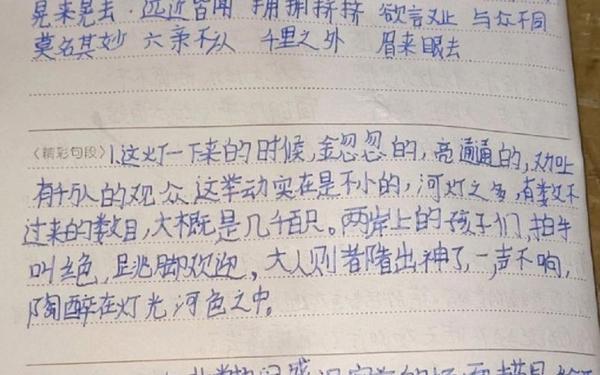 晃来晃去 远近皆闻 拥拥挤挤 欲言又止 与众不同
莫名其妙 六亲不认 千里之外 眉来眼去
〈精彩句段〉1.这灯一下来的时候,金忽忽的,亮通通的,又加上
有千万人的观众,这举动实在是不小的,河灯之多,有数不
过来的数目,大概是几千百只。两岸上的孩子们,拍手
叫绝,跳脚欢迎。大人则都看出神了,一声不响,
陶醉在灯光河色之中。